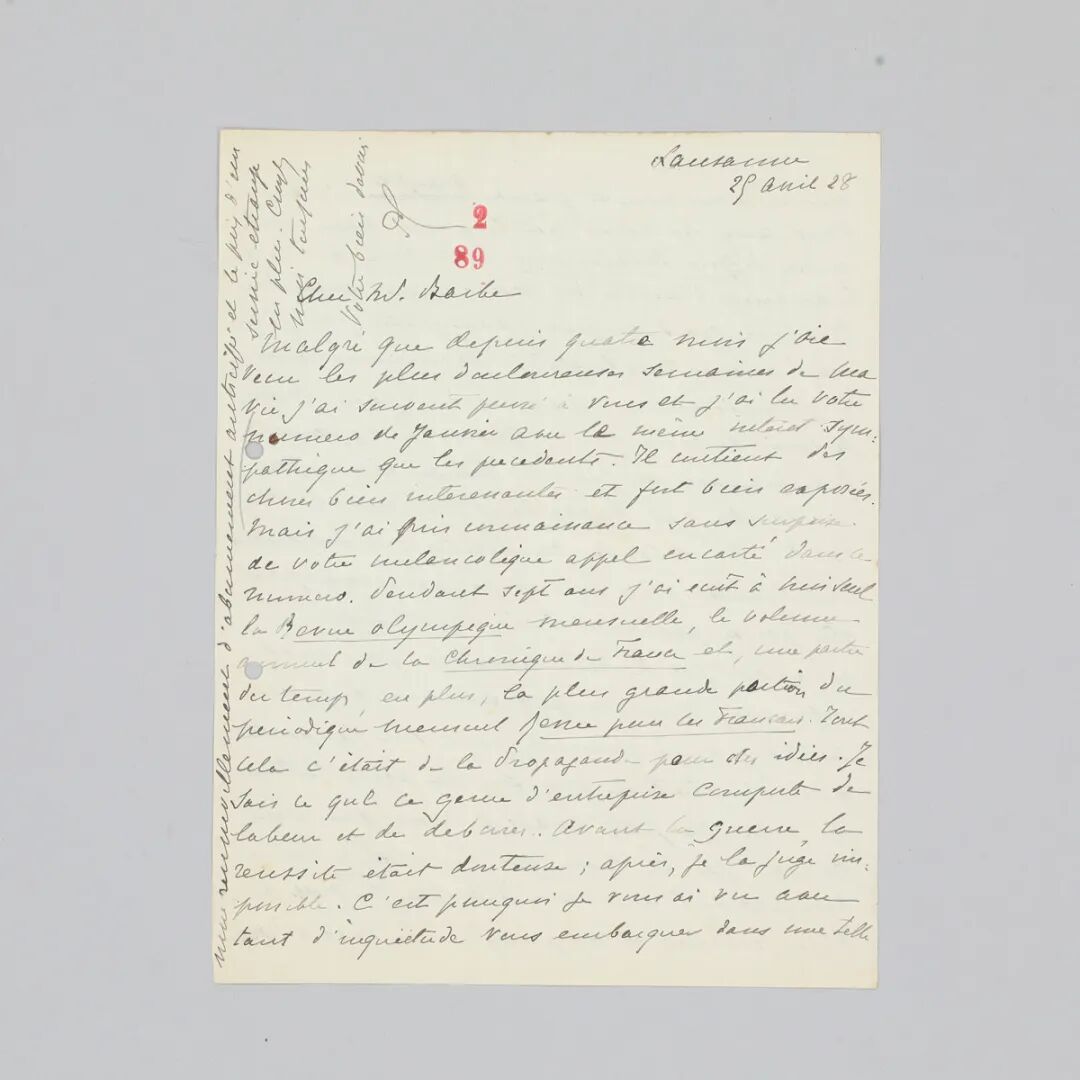 Lausanne
25 avril 28
2
89
Cher M. Barbe
Malgré que depuis quatre mois j'aie
vecu les plus douloureuses semaines de ma
vie j'ai souvent pensé à vous et j'ai lu votre
numero de Janvier avec le même interet sym-
pathique que les precedents. Il contient des
choses bien interessantes et fort bien exposées.
Mais j'ai pris connaissance sans surprise
de votre melancolique appel encarté dans ce
numero. Pendant sept ans j'ai ecrit à moi seul
la Revue olympique mensuelle, le volume
annuel de la Chronique de France et, une partie
du temps, en plus, la plus grande portion du
periodique mensuel pour les Français. Tout
cela c'était de la propagande pour des idées. Je
sais ce que ce genre d'entreprise comporte de
labeur et de deboires. Avant la guerre, la
reussite était douteuse ; après, je la juge im-
possible. C'est pourquoi je vous ai vu avec
tant d'inquietude vous embarquer dans une telle
mon renouvellement d'abonnement anticipé et le prix d'un
service etrange
en plus.
mais toujours
Votre bien devoué